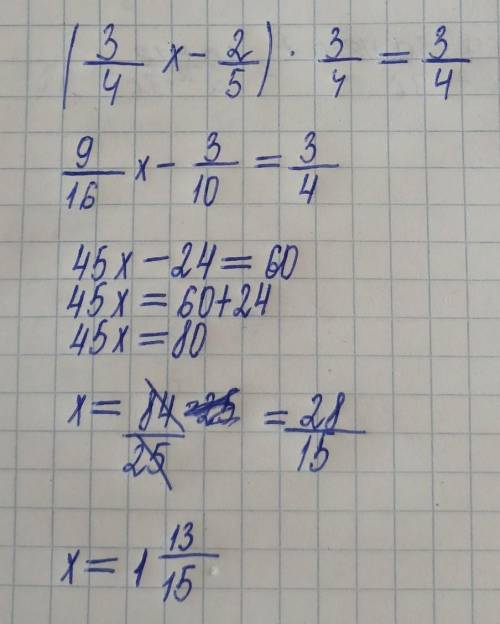 (3/4 x - 2/5) · 3/4 = 3/4
9/16 x - 3/10 = 3/4
45x - 24 = 60
45x = 60+24
45x = 80
x = 84/25 = 28/15
x = 1 13/15